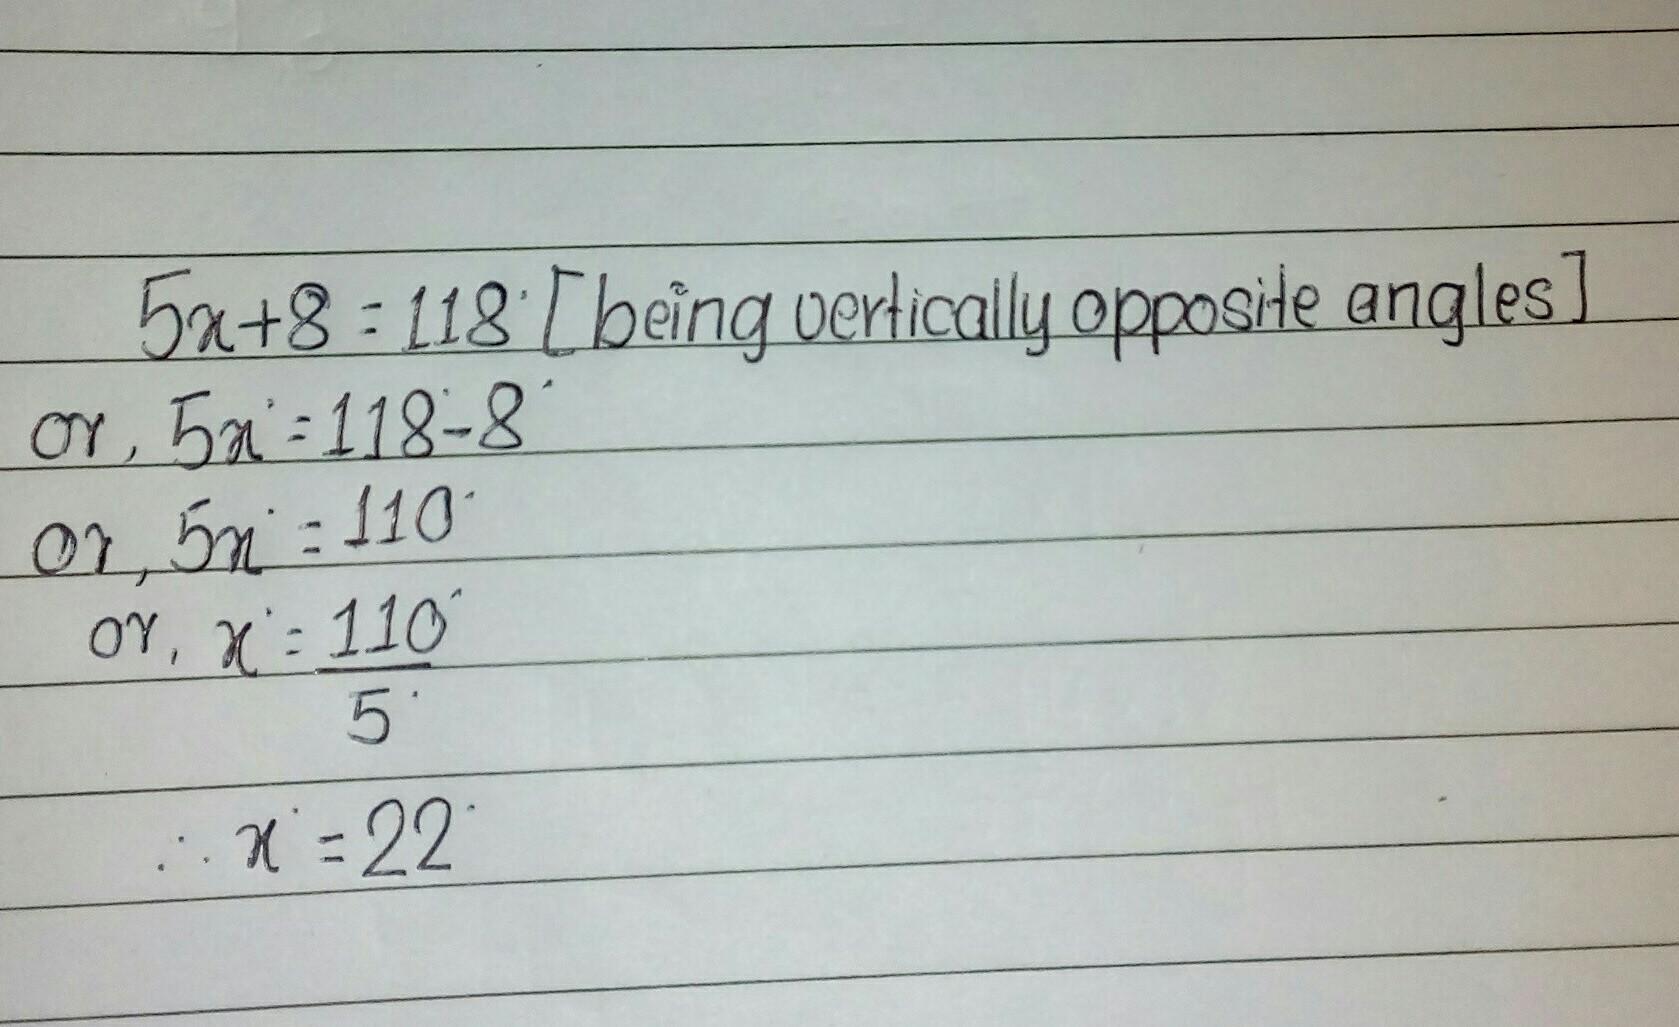 5x+8 = 118° [being vertically opposite angles]
or, 5x° = 118°-8°
or, 5x° = 110°
or, x° = 110°
5°
∴ x° = 22°